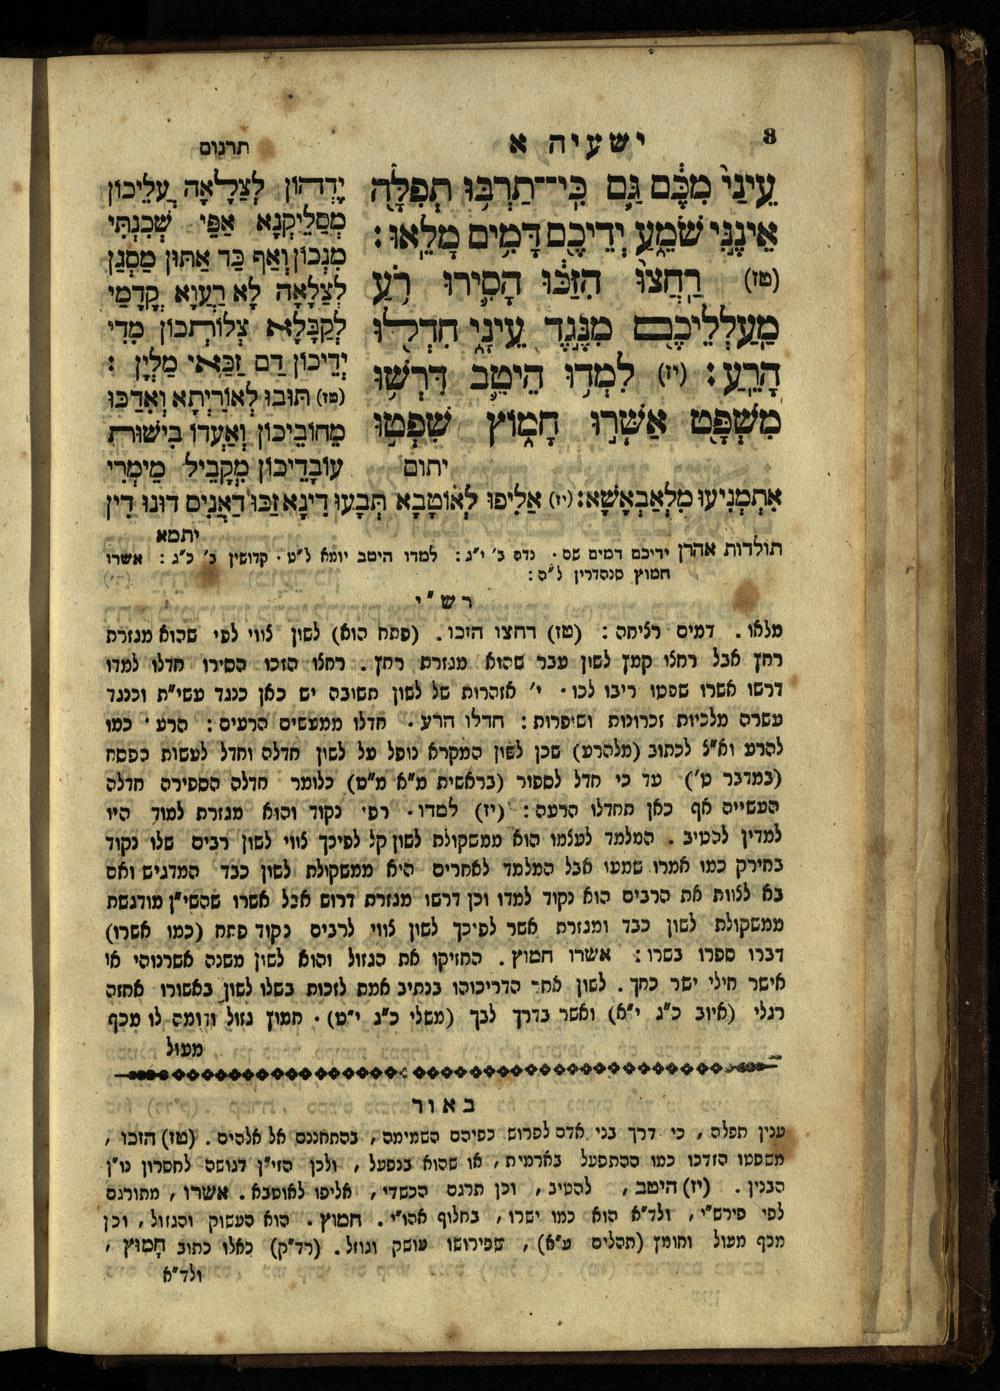 8
ישעיה א
תרגום
עֵינַי֙ מִכֶּ֔ם גַּ֛ם כִּֽי־תַרְבּ֥וּ תְפִלָּ֖ה
אֵינֶ֣נִּי שֹׁמֵ֑עַ יְדֵיכֶ֖ם דָּמִ֥ים מָלֵֽאוּ :
(טז) רַֽחֲצוּ֙ הִזַּכּ֔וּ הָסִ֛ירוּ רֹ֥עַ
מַֽעַלְלֵיכֶ֖ם מִנֶּ֣גֶד עֵינָ֑י חִדְל֖וּ
הָרֵֽעַ : (יז) לִמְד֥וּ הֵיטֵ֛ב דִּרְשׁ֥וּ
מִשְׁפָּ֖ט אַשְּׁר֣וּ חָמ֑וֹץ שִׁפְט֥וּ
יתום
יְדֵיהוֹן לְצַלָאָה עֲלֵיכוֹן
מְסַלֵיקְנָא אַפֵּי שְׁכִנְתִּי
מִנְכוֹן וְאַף כַּד אַתּוּן מַסְגַן
לְצַלָאָה לָא רַעֲוָא קֳדָמַי
לְקַבָּלָא צְלוֹתְכוֹן מִדֵי
יְדֵיכוֹן דַם זַכַּאי מַלְיָן :
(טז) תּוּבוּ לְאוֹרַיְתָא וְאִדַכּוּ
מֵחוֹבֵיכוֹן וְאַעְדוֹ בִּישׁוּת
עוֹבָדֵיכוֹן מִקֳבֵיל מֵימְרִי
אִתְמְנִיעוּ מִלְאַבְאָשָׁא : (יז) אֲלִיפוּ לְאוֹטָבָא תְּבָעוּ דִינָא זַכּוּ דַאֲנִיס דוּנוּ דִין
יתמא
תולדות אהרן ידיכם דמים שם . נדה ב' י"ג : למדו היטב יומא ל"ט . קדושין ב' כ"ג : אשרו
חמוץ סנהדרין ל"ה :
רש"י
מלאו . דמים רציחה : (טז) רחצו הזכו . (פתח הוא) לשון צווי לפי שהוא מגזרת
רחץ אבל רחצו קמץ לשון עבר שהוא מגזרת רחץ . רחצו הזכו הסירו חדלו למדו
דרשו אשרו שפטו ריבו לכו . י' אזהרות של לשון תשובה יש כאן כנגד עשי"ת וכנגד
עשרה מלכיות זכרונות ושופרות : חדלו הרע . חדלו ממעשים הרעים : הרע . כמו
להרע וא"צ לכתוב (מלהרע) שכן לשון המקרא נופל על לשון חדלה וחדל לעשות הפסח
(במדבר ט') עד כי חדל לספור (בראשית מ"א מ"ט) כלומר חדלה הספירה חדלה
העשייה אף כאן תחדלו הרעה : (יז) למדו . רפי נקוד והוא מגזרת למוד היו
למדין להטיב . המלמד לעצמו הוא ממשקולת לשון קל לפיכך צווי לשון רבים שלו נקוד
בחירק כמו אמרו שמעו אבל המלמד לאחרים היא ממשקולת לשון כבד המדגיש ואם
בא לצוות את הרבים הוא נקוד למדו וכן דרשו מגזרת דרוש אבל אשרו שהשי"ן מודגשת
ממשקולת לשון כבד ומגזרת אשר לפיכך לשון צווי לרבים נקוד פתח (כמו אשרו)
דברו ספרו בשרו : אשרו חמוץ . החזיקו את הגזול והוא לשון משנה אשרנוהי או
אישר חילי ישר כחך . לשון אחר הדריכוהו בנתיב אמת לזכות בשלו לשון באשורו אחזה
רגלי (איוב כ"ג י"א) ואשר בדרך לבך (משלי כ"ג י"ט) . חמוץ גזול ודומה לו מכף
מעול
באור
ענין תפלה , כי דרך בני אדם לפרוש כפיהם השמימה , בהתחננם אל אלהים . (טז) הזכו ,
משפטו הזדכו כמו ההתפעל בארמית , או שהוא בנפעל , ולכן הזי"ן דגושה לחסרון נו"ן
הבנין . (יז) היטב , להטיב , וכן תרגם הכשדי , אליפו לאוטבא . אשרו , מתורגם
לפי פירש"י , ולד"א הוא כמו ישרו , בחלוף אהו"י . חמוץ . הוא העשוק והגזול , וכן
מכף מעול וחומץ (תהלים ע"א) , שפירושו עושק וגוזל . (רד"ק) כאלו כתוב חָמוּץ ,
ולד"א